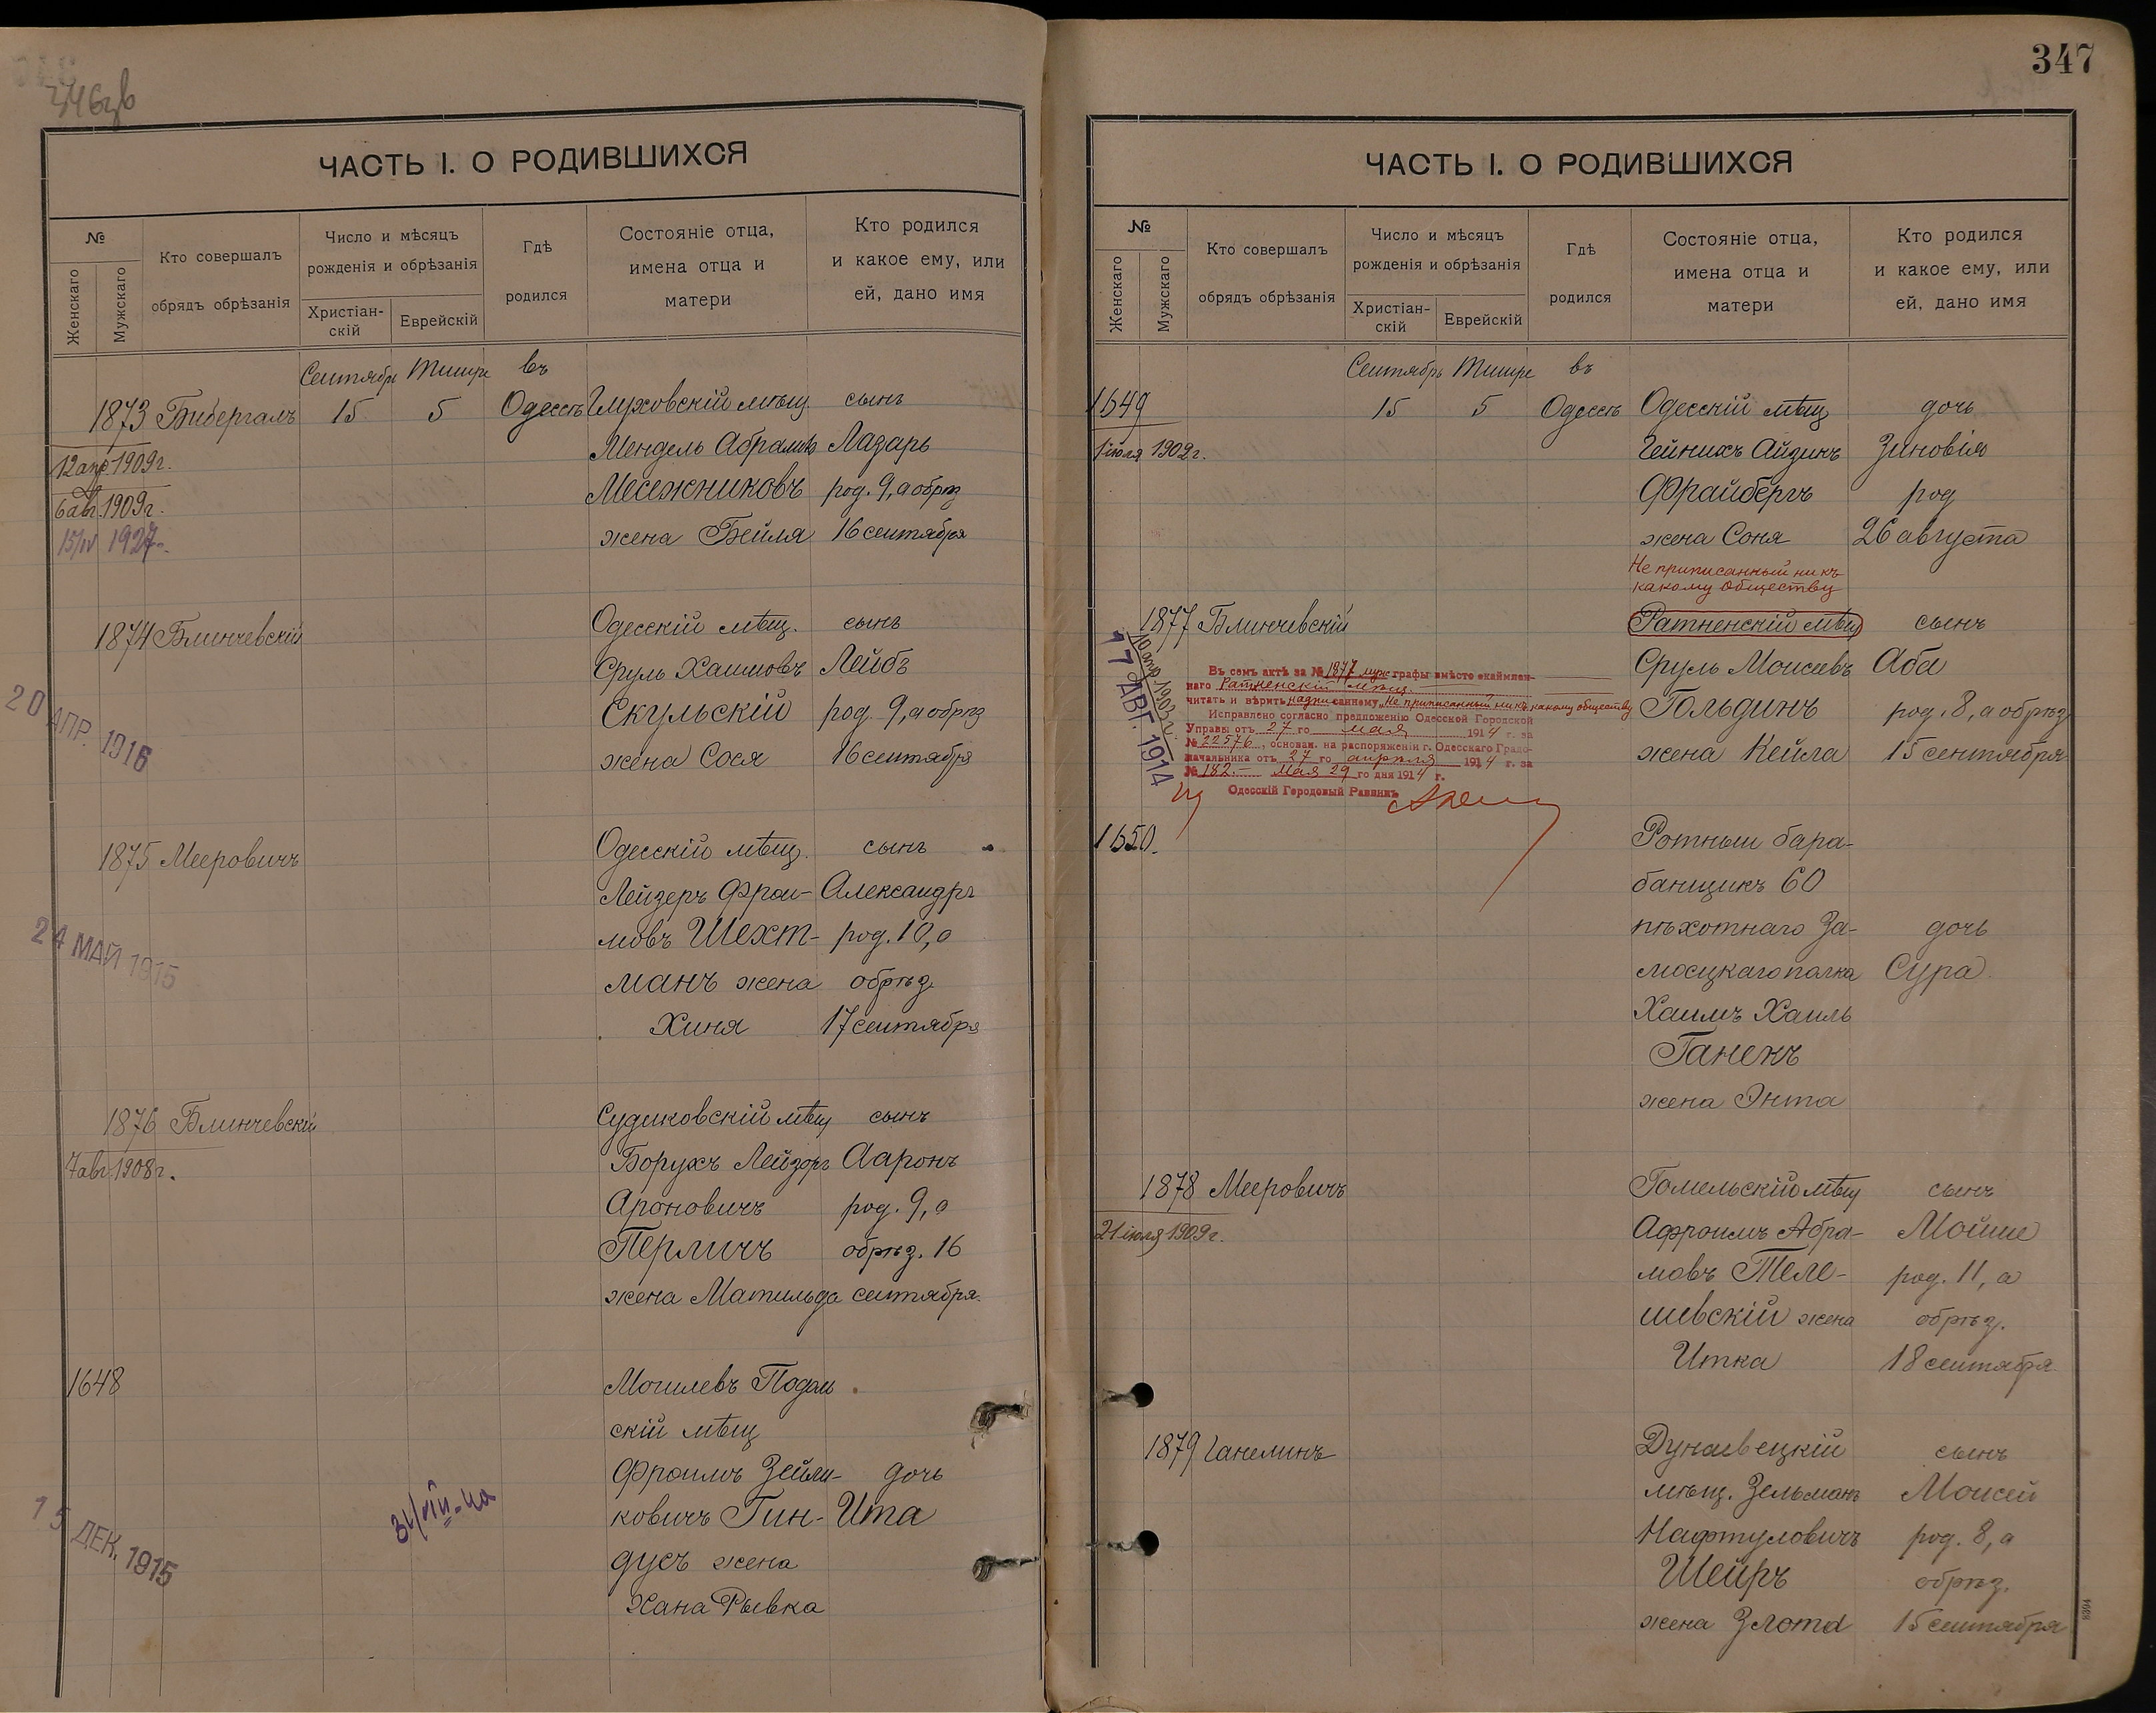 346 об
ЧАСТЬ I. О РОДИВШИХСЯ
№
Женскаго
Мужскаго
Кто совершалъ
обрядъ обрѣзанія
Число и мѣсяцъ
рожденія и обрѣзанія
Христіан-
скій
Еврейскій
Гдѣ
родился
Состояніе отца,
имена отца и
матери
Кто родился
и какое ему, или
ей, дано имя
Сентябрь Тишре въ
1873 Бибергалъ 15 5 Одессѣ Глуховскій мѣщ. сынъ
12 апр. 1909 г. Мендель Абрамовъ Лазарь
6 авг. 1909 г. Месежниковъ род. 9, а обрѣз
15/IV 1927 жена Бейля 16 сентября
1874 Блинчевскій Одесскій мѣщ. сынъ
Сруль Хаимовъ Лейбъ
20 АПР. 1916 Скульскій род. 9, а обрѣз
жена Сося 16 сентября
1875 Мееровичъ Одесскій мѣщ. сынъ
Лейзеръ Фрои- Александръ
24 МАЙ 1915 мовъ Шехт- род. 10, а
манъ жена обрѣз.
Хиня 17 сентября
1876 Блинчевскій Судиковскій мѣщ сынъ
7 авг. 1908 г. Борухъ Лейзоръ Ааронъ
Ароновичъ род. 9, а
Перличъ обрѣз. 16
жена Матильда сентября.
1648 Могилевъ Подоль
скій мѣщ
Фроимъ Зейли- дочь
ковичъ Гин- Ита
15 ДЕК. 1915 дусъ жена
Хана Рывка
347
ЧАСТЬ I. О РОДИВШИХСЯ
№
Женскаго
Мужскаго
Кто совершалъ
обрядъ обрѣзанія
Число и мѣсяцъ
рожденія и обрѣзанія
Христіан-
скій
Еврейскій
Гдѣ
родился
Состояніе отца,
имена отца и
матери
Кто родился
и какое ему, или
ей, дано имя
Сентябрь Тишре въ
1649 15 5 Одессѣ Одесскій мѣщ дочь
1 іюля 1902 г. Гейнихъ Айзинъ Зиновія
Фрайбергъ род
жена Соня 26 августа
Не приписанный ни къ
какому обществу
1877 Блинчевскій Ратненскій мѣщ сынъ
10 апр. 1903 г.
17 АВГ. 1914
Сруль Моисеевъ Аба
Гольдинъ род. 8, а обрѣз
жена Кейла 15 сентября
Въ семъ актѣ за № 1877 муж графы вмѣсто окаймлен-
наго Ратненскій мѣщ.
читать и вѣрить надписанному „Не приписанный ни къ какому обществу
Исправлено согласно предложенію Одесской Городской
Управы отъ 27 го мая 1914 г. за
№ 22576, основан. на распоряженіи г. Одесскаго Градо-
начальника отъ 27 го апрѣля 1914 г. за
№ 182. — Мая 29 го дня 1914 г.
Одесскій Городовый Раввинъ
1650. Ротный бара-
банщикъ 60
пѣхотнаго За- дочь
мосцкаго полка Сура
Хаимъ Хаиль
Ганекъ
жена Энта
1878 Мееровичъ Гомельскій мѣщ сынъ
21 іюля 1909 г. Афроимъ Абра- Мойше
мовъ Теле- род. 11, а
шевскій жена обрѣз.
Итка 18 сентября
1879 Ганелинъ Дунаевецкій сынъ
мѣщ. Зельманъ Моисей
Нафтуловичъ род. 8, а
Шейръ обрѣз.
жена Злота 15 сентября
8394